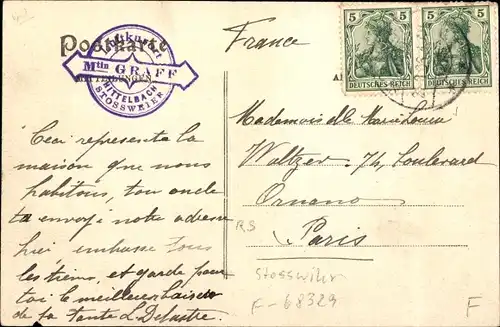 Postkarte
France
Luftkurort
Mtin GRAFF
MITTEILUNGEN
MITTELBACH
STOSSWEIER
5 5 5 5
DEUTSCHES REICH DEUTSCHES REICH
Ceci représente la
maison que nous
habitons, ton oncle
t'a envoyé notre adresse
hier embrasse tous
les tiens, et garde pour
toi le meilleur baiser
de ta Tante L Delastre.
Mademoiselle Marie Louise
Waltzer 74, boulevard
Ornano
Paris
R.S
Stosswihr
F-68329
F